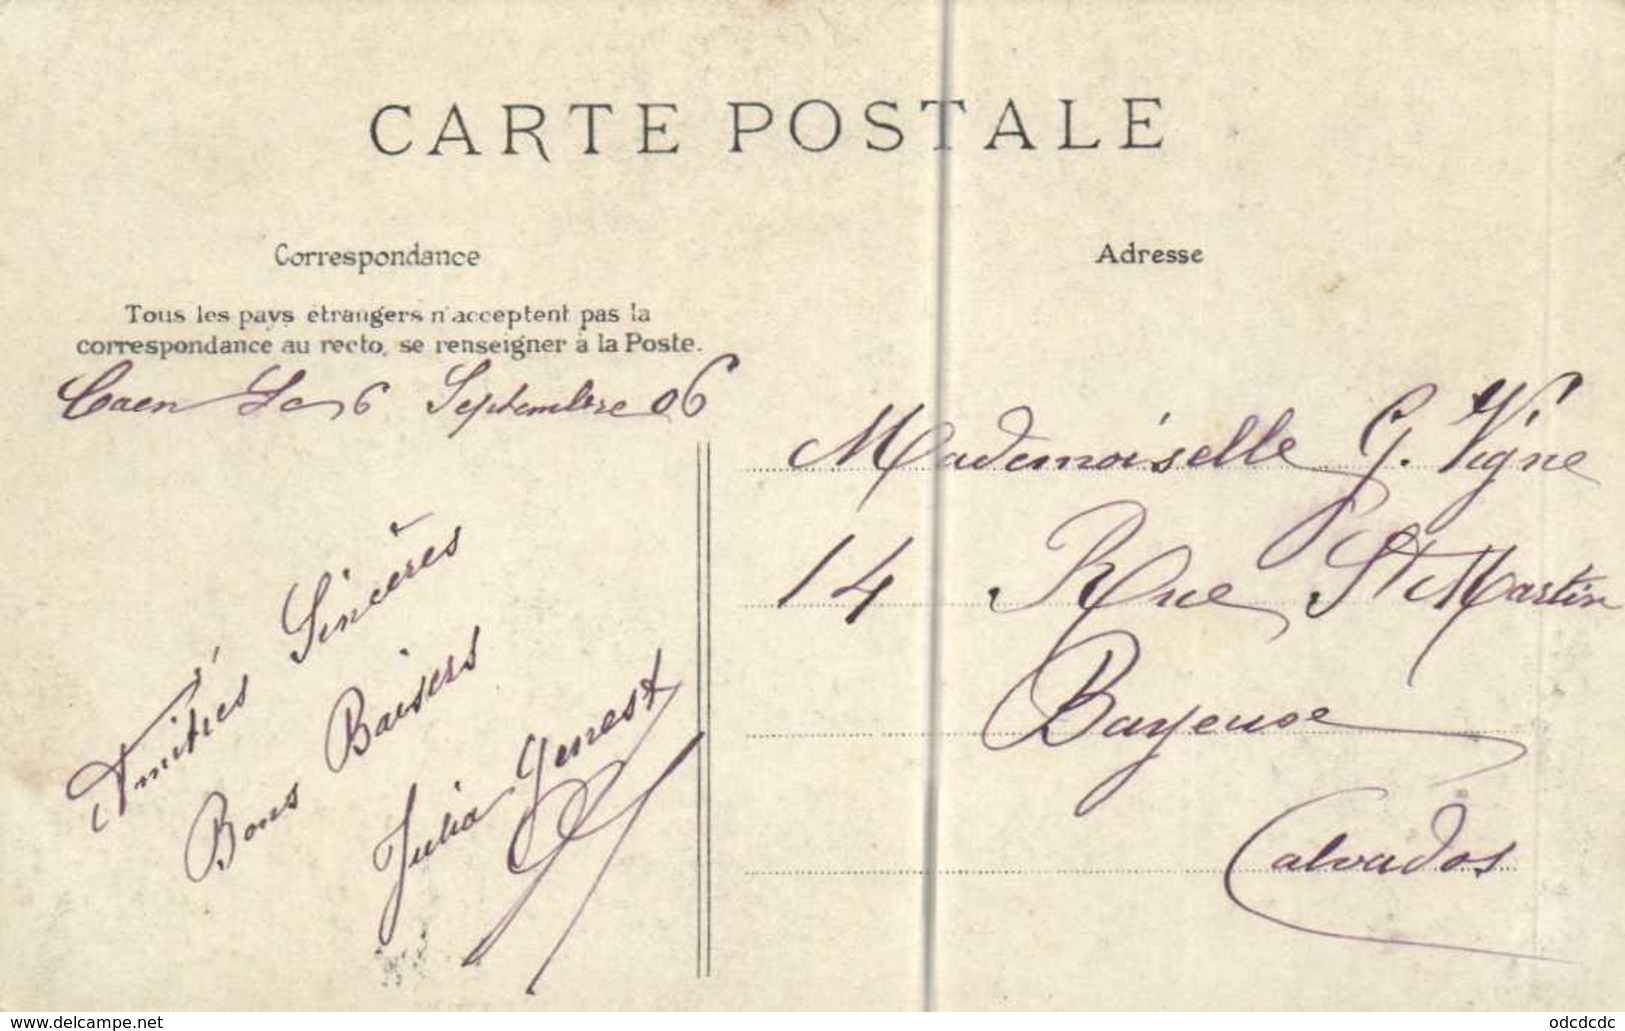 CARTE POSTALE
Correspondance
Tous les pays étrangers n'acceptent pas la
correspondance au recto, se renseigner à la Poste.
Caen Le 6 Septembre 06
Amitiés Sincères
Bons Baisers
Julia Genest
Adresse
Mademoiselle G. Vigne
14 Rue St Martin
Bayeux
Calvados
www.delcampe.net
odcdcdc